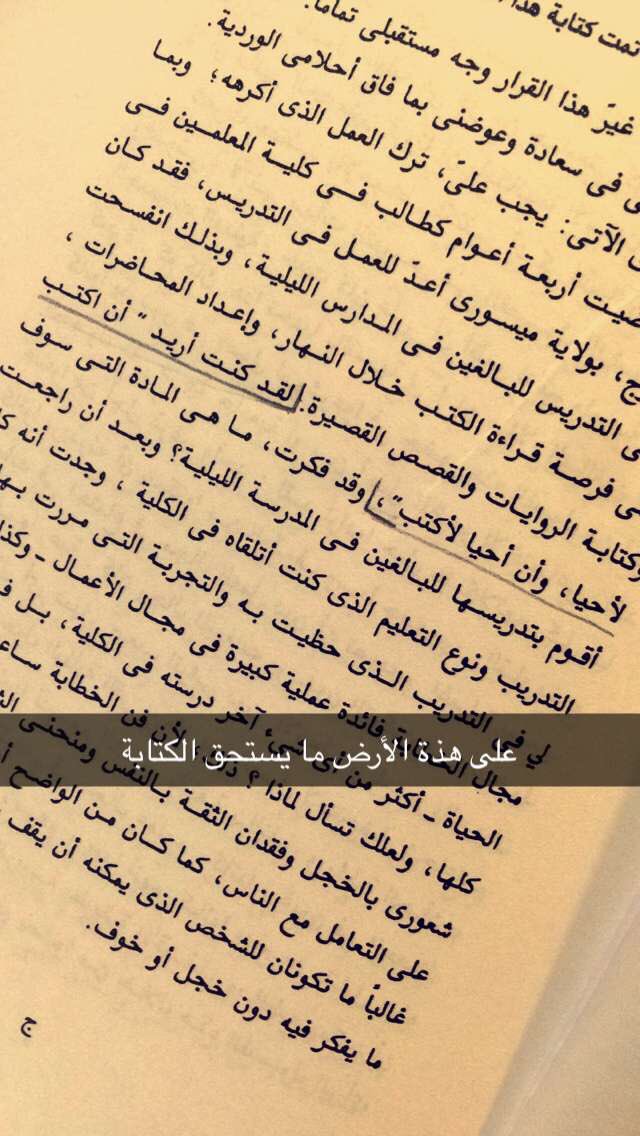 تمت كتابة هذا
غيرّ هذا القرار وجه مستقبلى تماماً.
فى سعادة وعوضنى بما فاق أحلامى الوردية.
الآتى: يجب علىّ، ترك العمل الذى أكرهه؛ وبما
أربعة أعوام كطالب فى كلية المعلمين فى
بولاية ميسورى أعدّ للعمل فى التدريس، فقد كان
التدريس للبالغين فى المدارس الليلية، وبذلك انفسحت
فرصة قراءة الكتب خلال النهار، وإعداد المحاضرات،
وكتابة الروايات والقصص القصيرة. لقد كنت أريد " أن اكتب
لأحيا، وأن أحيا لأكتب"، وقد فكرت، ما هى المادة التى سوف
أقوم بتدريسها للبالغين فى المدرسة الليلية؟ وبعد أن راجعت
التدريب ونوع التعليم الذى كنت أتلقاه فى الكلية ، وجدت أنه
لي فى التدريب الذى حظيت به والتجربة التى مررت بها
مجال فائدة عملية كبيرة فى مجال الأعمال - وكذا
الحياة - أكثر من آخر درسته فى الكلية، بل
كلها، ولعلك تسأل لماذا ؟ لأن فن الخطابة
شعورى بالخجل وفقدان الثقة بالنفس ومنحنى
على التعامل مع الناس، كما كان من الواضح
غالباً ما تكونان للشخص الذى يمكنه أن يقف
ما يفكر فيه دون خجل أو خوف.
ج
على هذة الأرض ما يستحق الكتابة